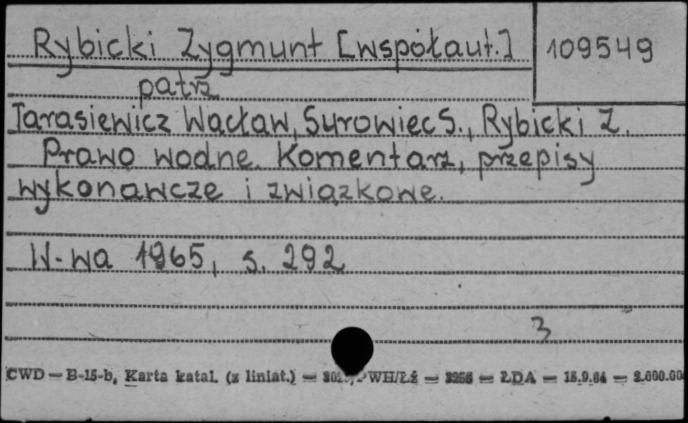 Rybicki Zygmunt [współaut.] 109549
patrz
Tarasiewicz Wacław, Surowiec S., Rybicki Z.
Prawo wodne. Komentarz, przepisy
wykonawcze i związkowe.
W-wa 1965, s. 292
3
CWD — B-15-b, Karta katal. (z liniat.) — WH/Łź — ŁDA — 15.9.64